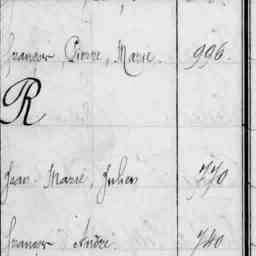 François, Pierre, Marie. 996.
R
Jean Marie, Julien 770
François André 740